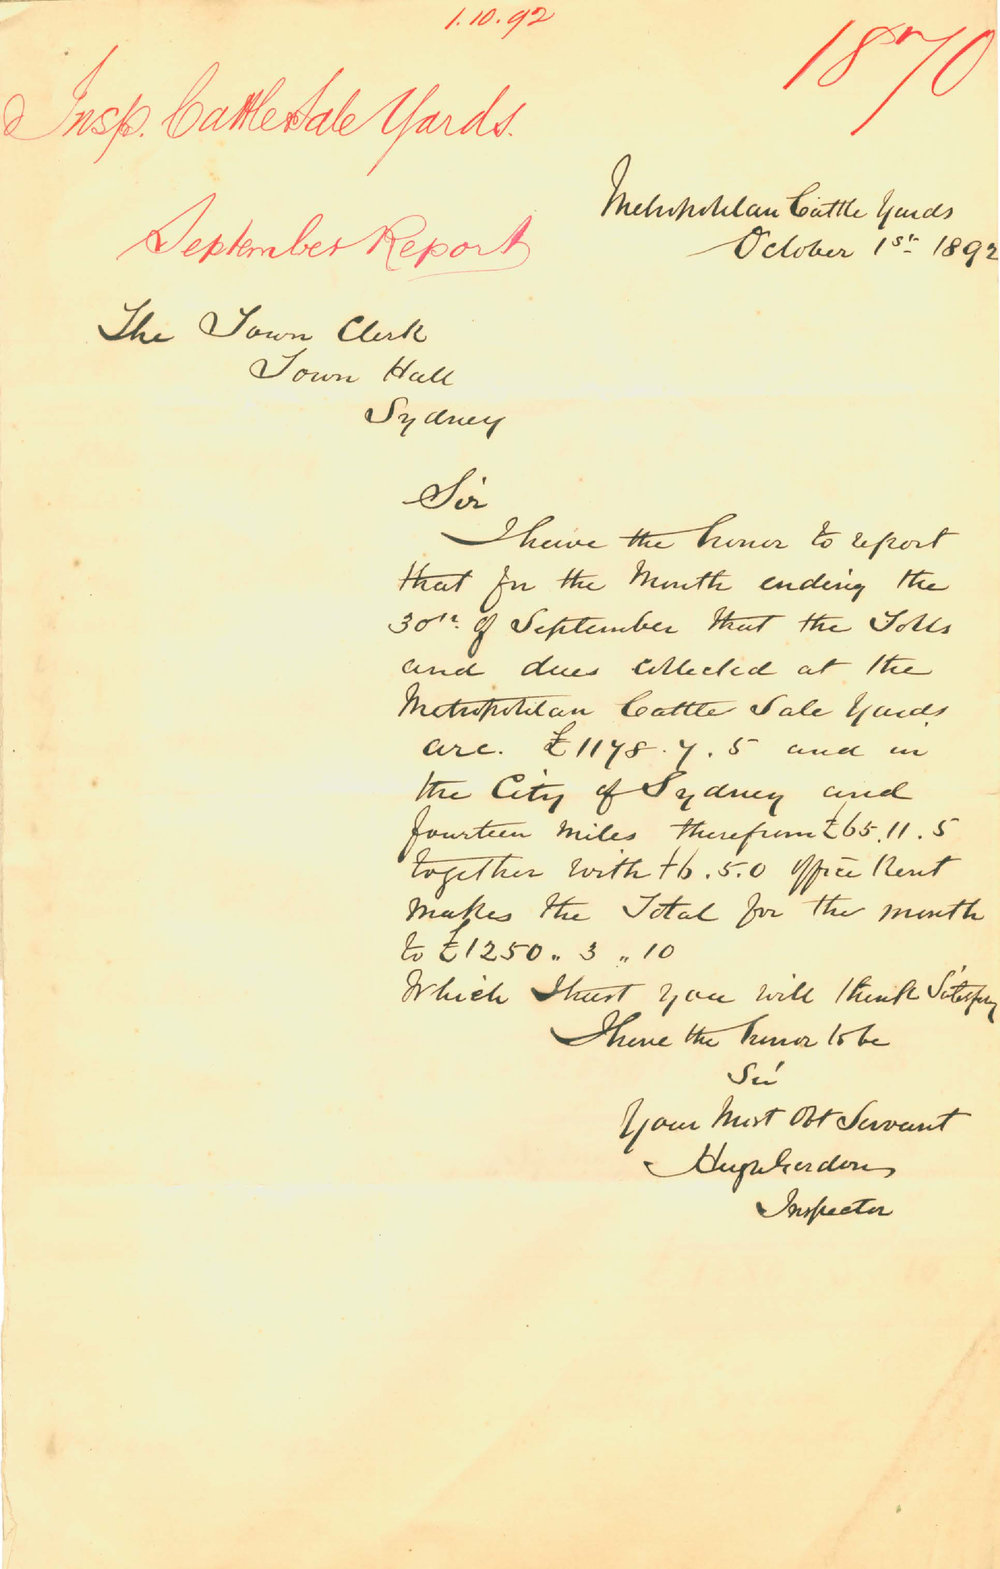 1.10.92
1870
Insp. Cattle Sale Yards.
September Report
Metropolitan Cattle Yards
October 1st. 1892
The Town Clerk
Town Hall
Sydney
Sir
I have the honor to report
that for the Month ending the
30th. of September that the Tolls
and dues collected at the
Metropolitan Cattle Sale Yards
are. £1178.7.5 and in
the City of Sydney and
fourteen miles therefrom £65.11.5
together with £6.5.0 office Rent
makes the Total for the month
to £1250 " 3 " 10
Which I trust you will think
I have the honor to be
Sir
Your Most Obt Servant
Hugh Gordon
Inspector